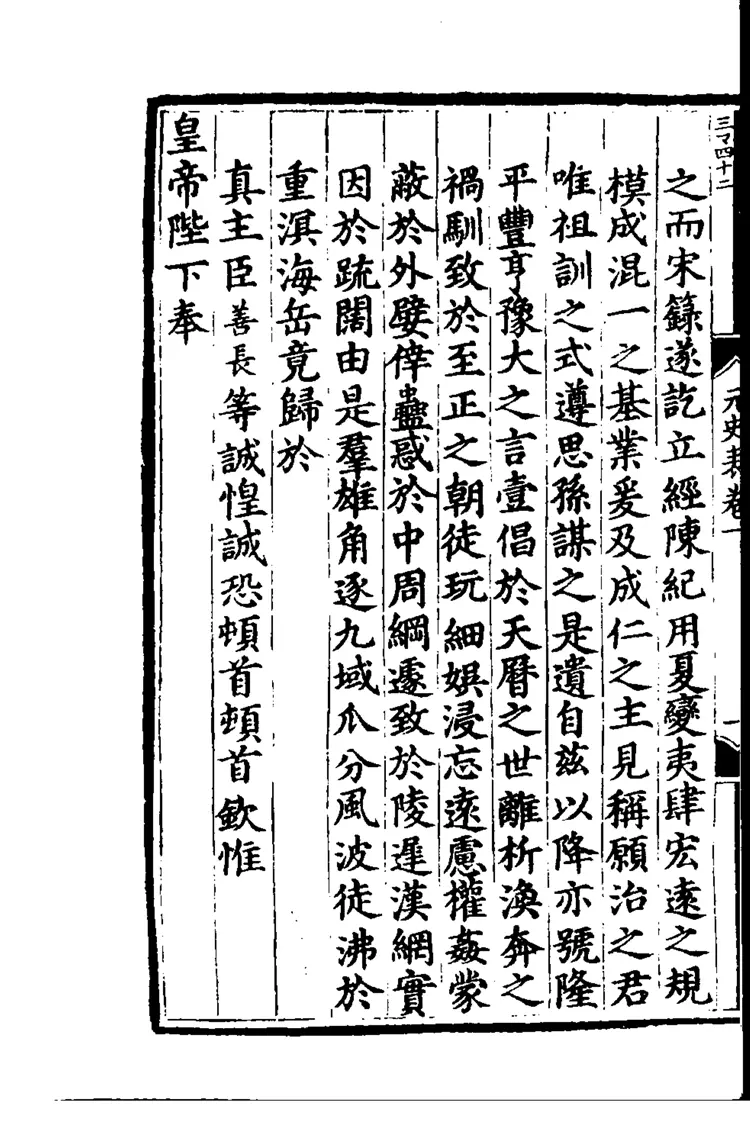 三丁四十二
元史表卷一
之而宋籙遂訖立經陳紀用夏變夷肆宏遠之規
模成混一之基業爰及成仁之主見稱願治之君
唯祖訓之式遵思孫謀之是遺自茲以降亦號隆
平豐亨豫大之言壹倡於天曆之世離析渙奔之
禍馴致於至正之朝徒玩細娛浸忘遠慮權姦蒙
蔽於外嬖倖蠱惑於中周綱遽致於陵遲漢網實
因於疏闊由是羣雄角逐九域瓜分風波徒沸於
重溟海岳竟歸於
真主臣善長等誠惶誠恐頓首頓首欽惟
皇帝陛下奉